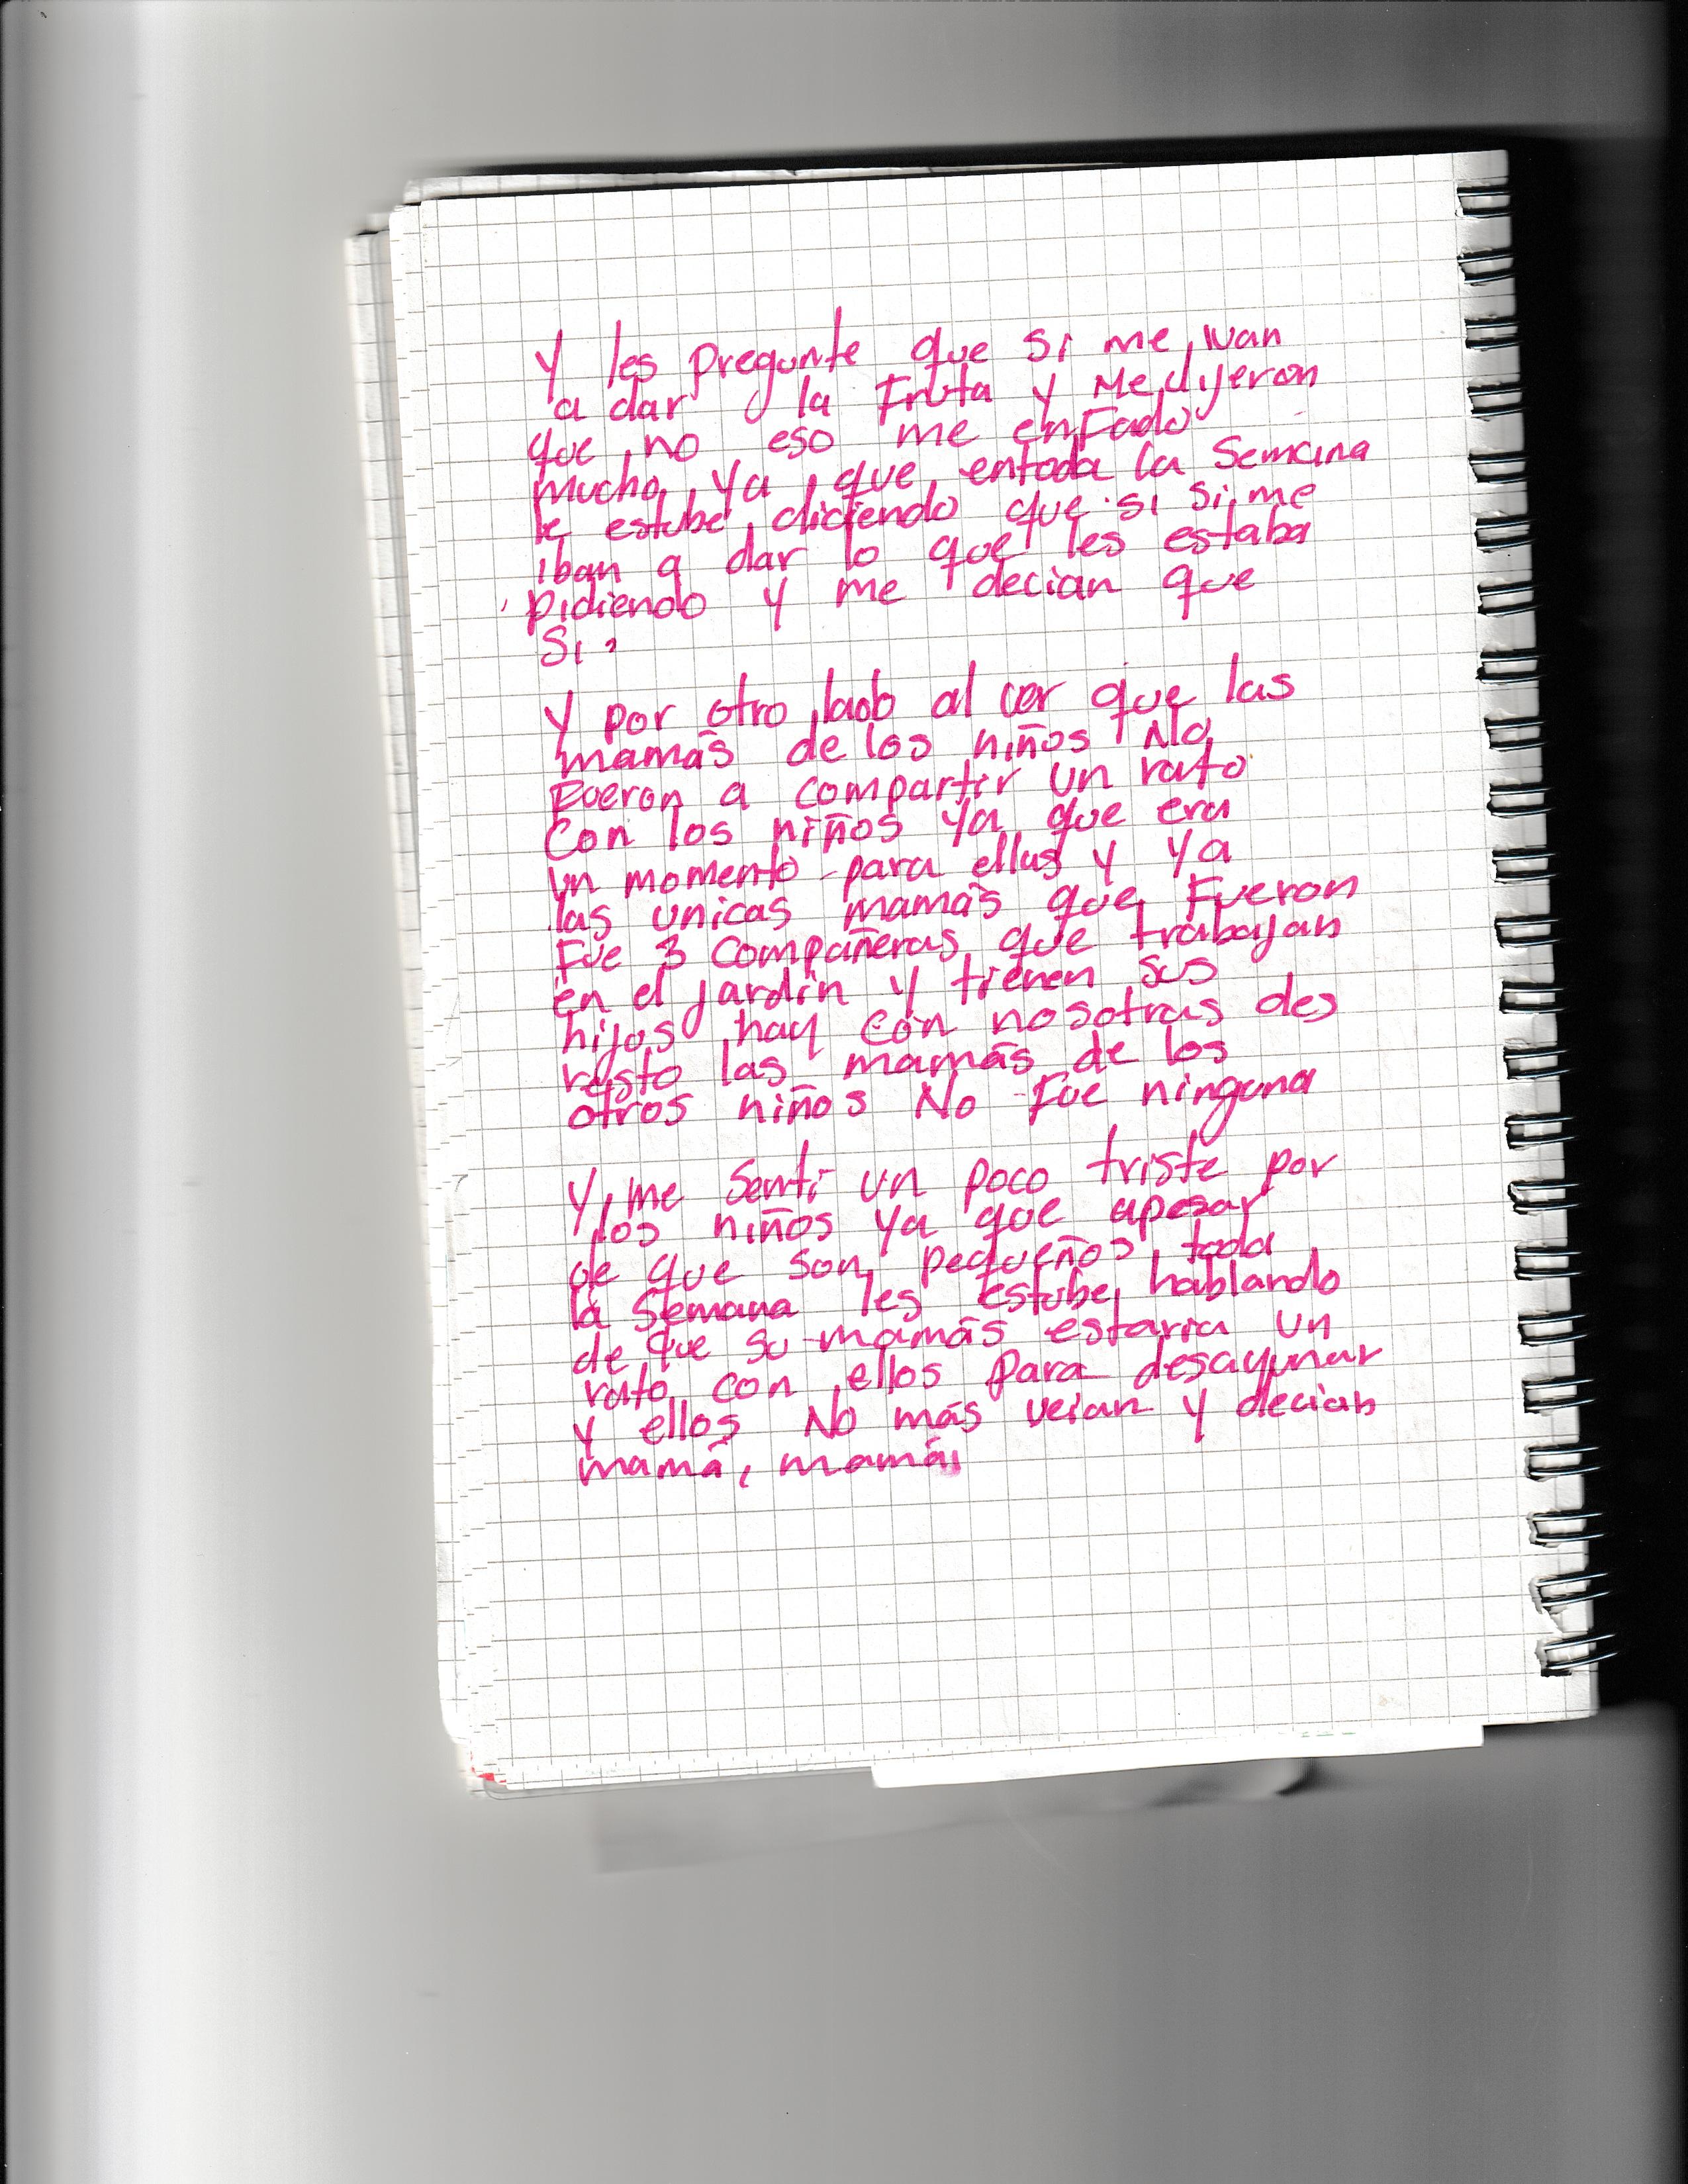 Y les pregunte que si me ivan
a dar la Fruta y Me dijeron
que no eso me enFado
mucho ya que entoda la Semana
le estube diciendo que si si me
iban a dar lo que les estaba
pidiendo y me decian que
Si.
Y por otro lado al ver que las
mamás de los niños No
Fueron a compartir un rato
Con los niños ya que era
un momento para ellas y ya
las unicas mamás que Fueron
Fue 3 Compañeras que trabajan
en el jardin y tienen sus
hijos hay con nosotras des
resto las mamás de los
otros niños No Fue ninguna
Y me Senti un poco triste por
los niños ya que apesar
de que son pequeños toda
la Semana les estube hablando
de que su mamás estaria un
rato con ellos para desayunar
y ellos No más veian y decian
mamá, mamá